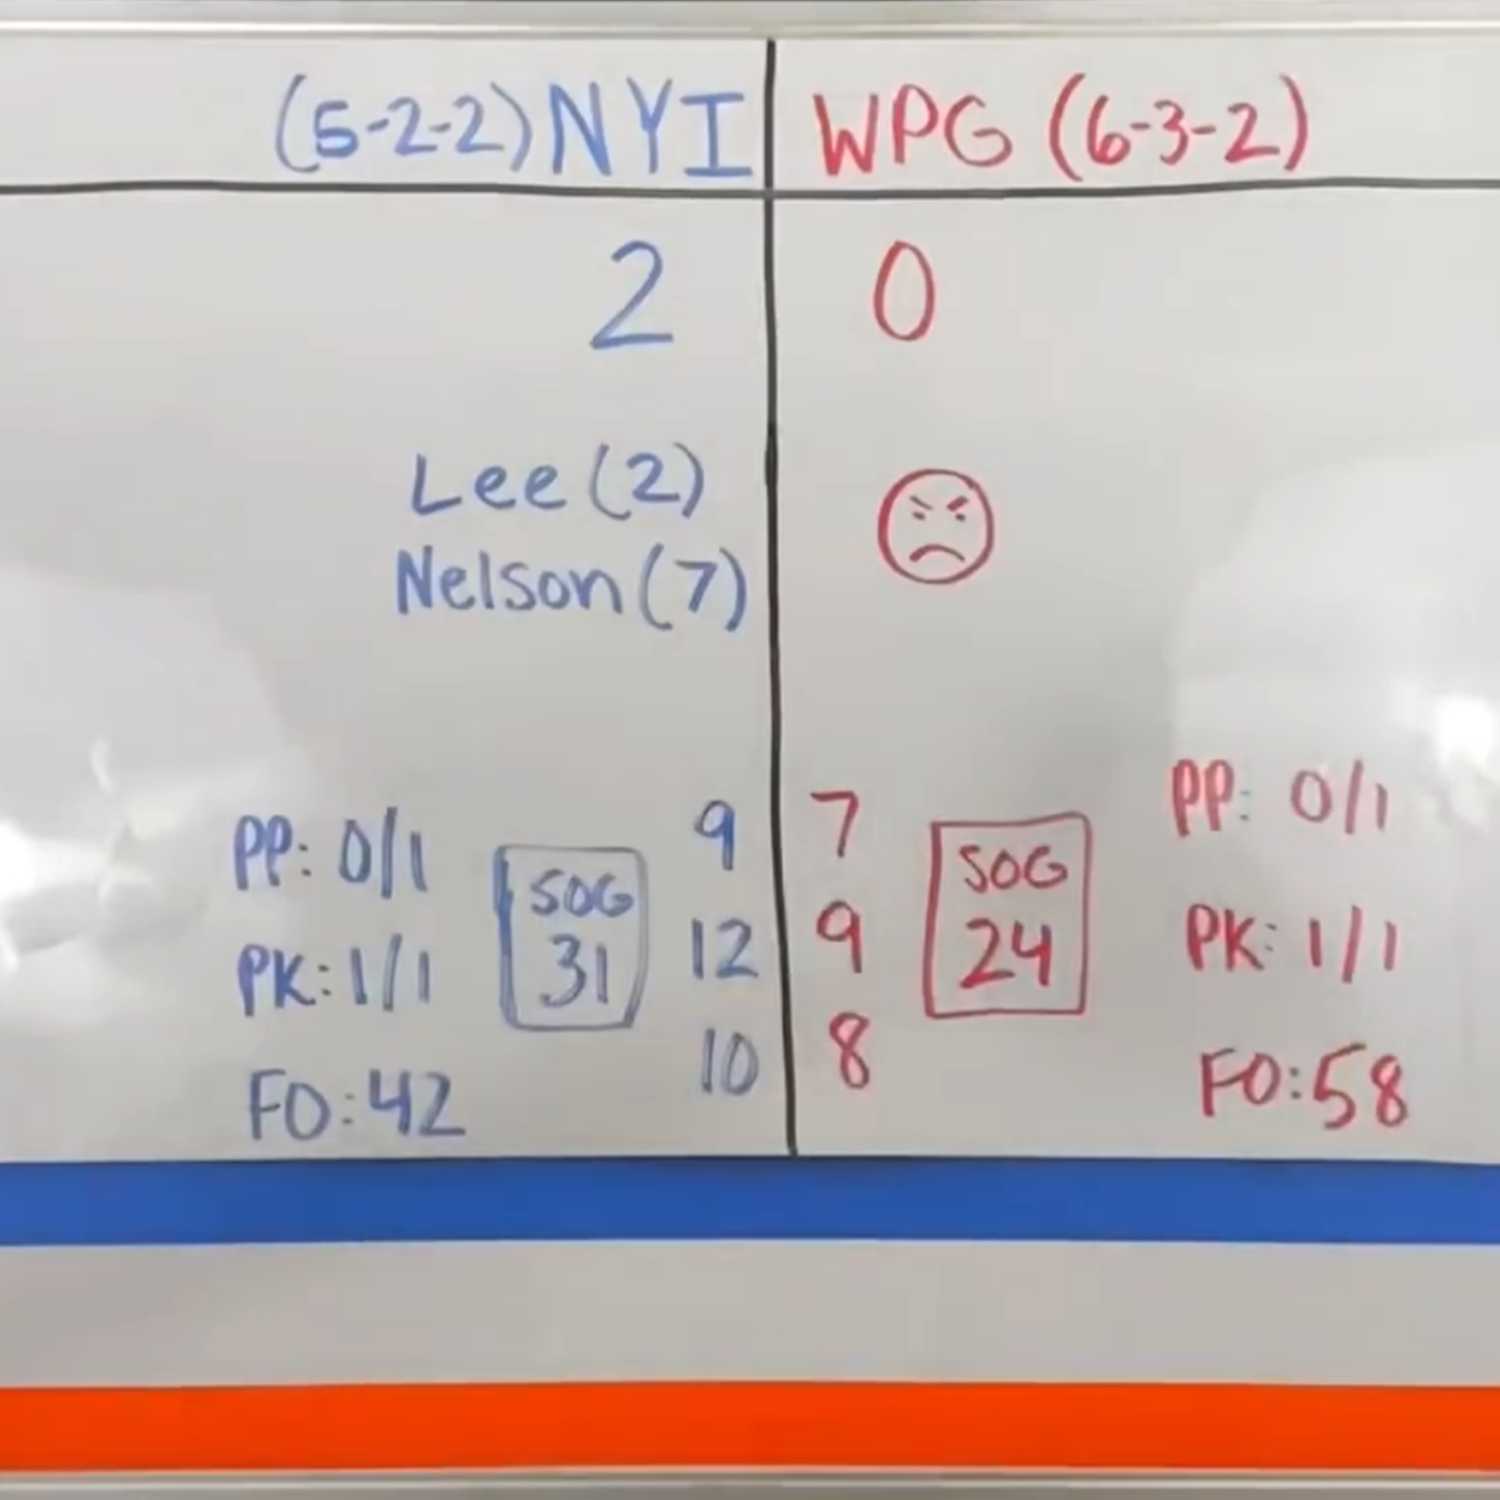 (5-2-2) NYI WPG (6-3-2)
2 0
Lee (2)
Nelson (7)
PP: 0/1
PK: 1/1
FO: 42
SOG
31
9
12
10
7
9
8
SOG
24
PP: 0/1
PK: 1/1
FO: 58